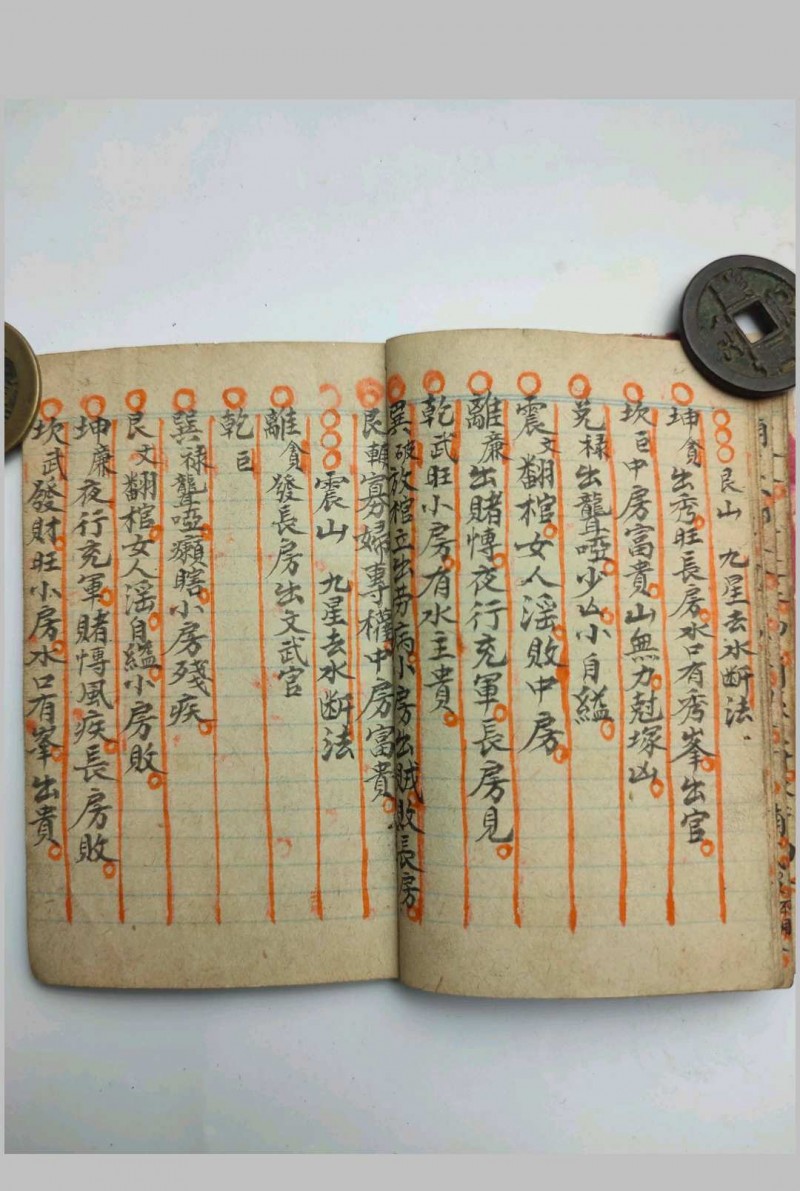 艮山 九星去水断法
坤貪出秀旺長房水口有秀峯出官
坎巨中房富貴山無力尅塚凶
兑禄出聾啞少亡小自縊
震文翻棺女人滛敗中房
離廉出賭愽夜行充軍長房見
乾武旺小房有水主貴
巽破放棺立出劳病小房出贼敗長房
艮輔寡婦專權中房富貴
震山 九星去水断法
離貪發長房出文武官
乾巨
巽禄聾啞癩瞎小房殘疾
艮文翻棺女人滛自縊小房敗
坤廉夜行充軍賭愽風疾長房敗
坎武發財旺小房水口有峯出貴